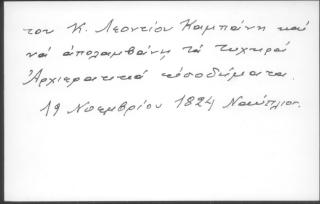 του Κ. Λεοντίου Καμπάνη καί
νά ἀπολαμβάνῃ τά τυχηρά
Ἀρχιερατικά εἰσοδήματα.
19 Νοεμβρίου 1824 Ναύπλιον.